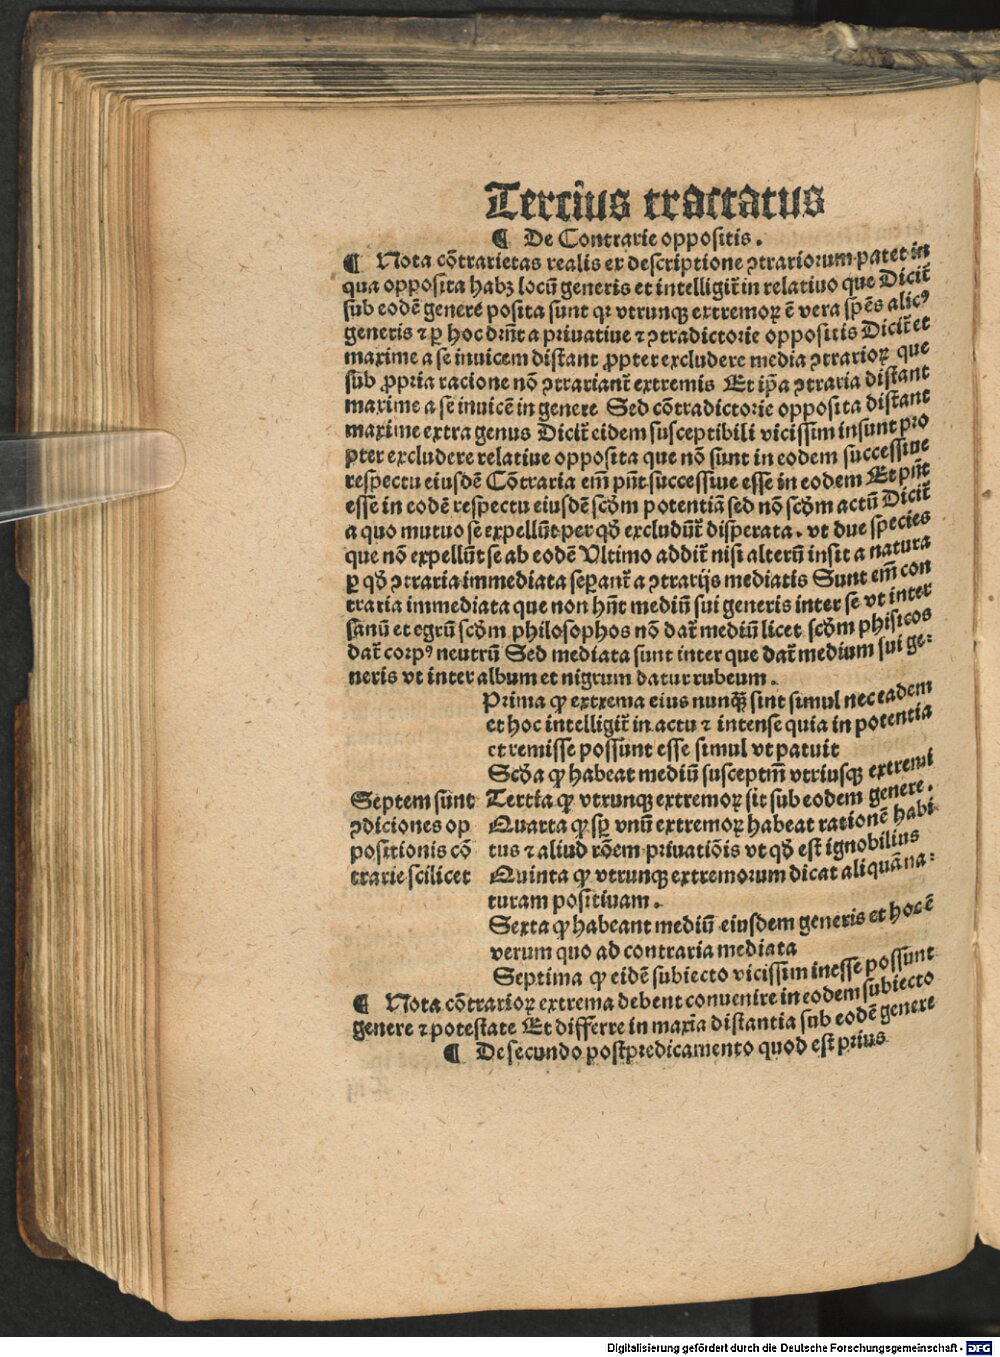 Tercius tractatus
¶ De Contrarie oppositis.
¶ Nota cõtrarietas realis ex descriptione ↄtrarioꝛum patet in
qua opposita habꝫ locũ generis et intelligit̃ in relatiuo que Dicit̃
sub eodẽ genere posita sunt qꝛ vtrunqꝫ extremoꝝ ẽ vera spẽs alicꝰ
generis ⁊ ꝑ hoc dr̃nt a priuatiue ⁊ ↄtradictoꝛie oppositis Dicit̃ et
maxime a se inuicem distant ꝓpter excludere media ↄtrarioꝝ que
sub ꝓpria racione nõ ↄtrariant̃ extremis Et ip̃a ↄtraria distant
maxime a se inuicẽ in genere Sed cõtradictoꝛie opposita distant
maxime extra genus Dicit̃ eidem susceptibili vicissim insunt pꝛo
pter excludere relatiue opposita que nõ sunt in eodem successiue
respectu eiusdẽ Cõtraria em̃ pñt successiue esse in eodem Et pñt
esse in eodẽ respectu eiusdẽ scd̾m potentiã sed nõ scd̾m actũ Dicit̃
a quo mutuo se expellũt per qd̾ excludũt̃ disperata. vt due species
que nõ expellũt se ab eodẽ Ultimo addit̃ nisi alterũ insit a natura
ꝑ qd̾ ↄtraria immediata sepant̃ a ↄtrarijs mediatis Sunt em̃ con
traria immediata que non hñt mediũ sui generis inter se vt inter
sanũ et egrũ scd̾m philosophos nõ dat̃ mediũ licet scd̾m phisicos
dat̃ coꝛpꝰ neutrũ Sed mediata sunt inter que dat̃ medium sui ge-
neris vt inter album et nigrum datur rubeum.
Pꝛima ꝙ extrema eius nunqꝫ̃ sint simul nec eadem
et hoc intelligit̃ in actu ⁊ intense quia in potentia
et remisse possunt esse simul vt patuit
Scd̾a ꝙ habeat mediũ susceptm̃ vtriusqꝫ extremi
Septem sunt Tertia ꝙ vtrunqꝫ extremoꝝ sit sub eodem genere.
ↄdiciones op Quarta ꝙ sꝑ vnũ extremoꝝ habeat rationẽ habi
positionis cõ tus ⁊ aliud rõem pꝛiuatiõis vt qd̾ est ignobilius
trarie scilicet Quinta ꝙ vtrunqꝫ extremoꝛum dicat aliquã na-
turam positiuam.
Sexta ꝙ habeant mediũ eiusdem generis et hoc ẽ
verum quo ad contraria mediata
Septima ꝙ eidẽ subiecto vicissim inesse possunt
¶ Nota cõtrarioꝝ extrema debent conuenire in eodem subiecto
genere ⁊ potestate Et differre in maxĩa distantia sub eodẽ genere
¶ De secundo postpredicamento quod est pꝛius
Digitalisierung gefördert durch die Deutsche Forschungsgemeinschaft - DFG